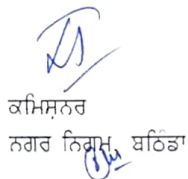 ਕਮਿਸ਼ਨਰ
ਨਗਰ ਨਿਗਮ, ਬਠਿੰਡਾ